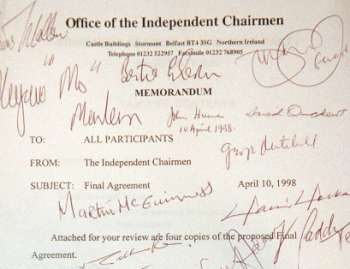 Office of the Independent Chairmen
Castle Buildings Stormont Belfast BT4 3SG Northern Ireland
Telephone 01232 522957 Facsimile 01232 768905
Bertie Ahern
MEMORANDUM
"Mo"
Mowlam
John Hume
10 April 1998
TO: ALL PARTICIPANTS
George Mitchell
FROM: The Independent Chairmen
SUBJECT: Final Agreement April 10, 1998
Martin McGuinness
Attached for your review are four copies of the proposed Final
Agreement.